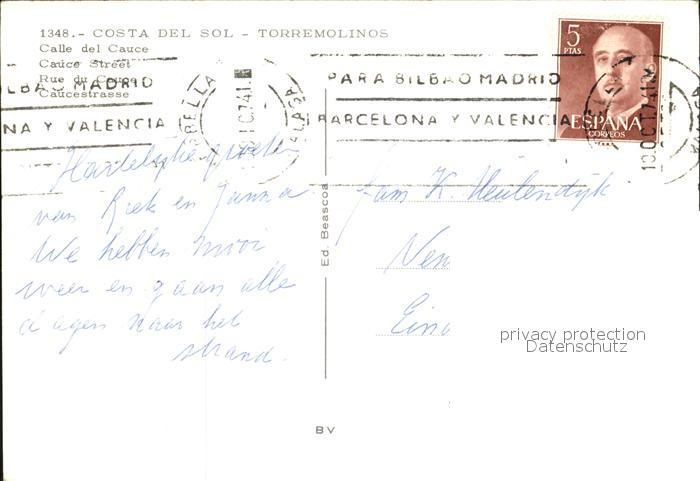 1348.- COSTA DEL SOL - TORREMOLINOS
Calle del Cauce
Cauce Street
Rue du Cauce
Caucestrasse
LBAO MADRID
NA Y VALENCIA
PARA BILBAO MADRID
BARCELONA Y VALENCIA
5
PTAS
ESPAÑA
CORREOS
Hartelijke groeten
van Riek en Janna
We hebben mooi
weer en gaan alle
dagen naar het
strand.
Ed. Beascoa
fam K. Meulendijk
privacy protection
Datenschutz
BV